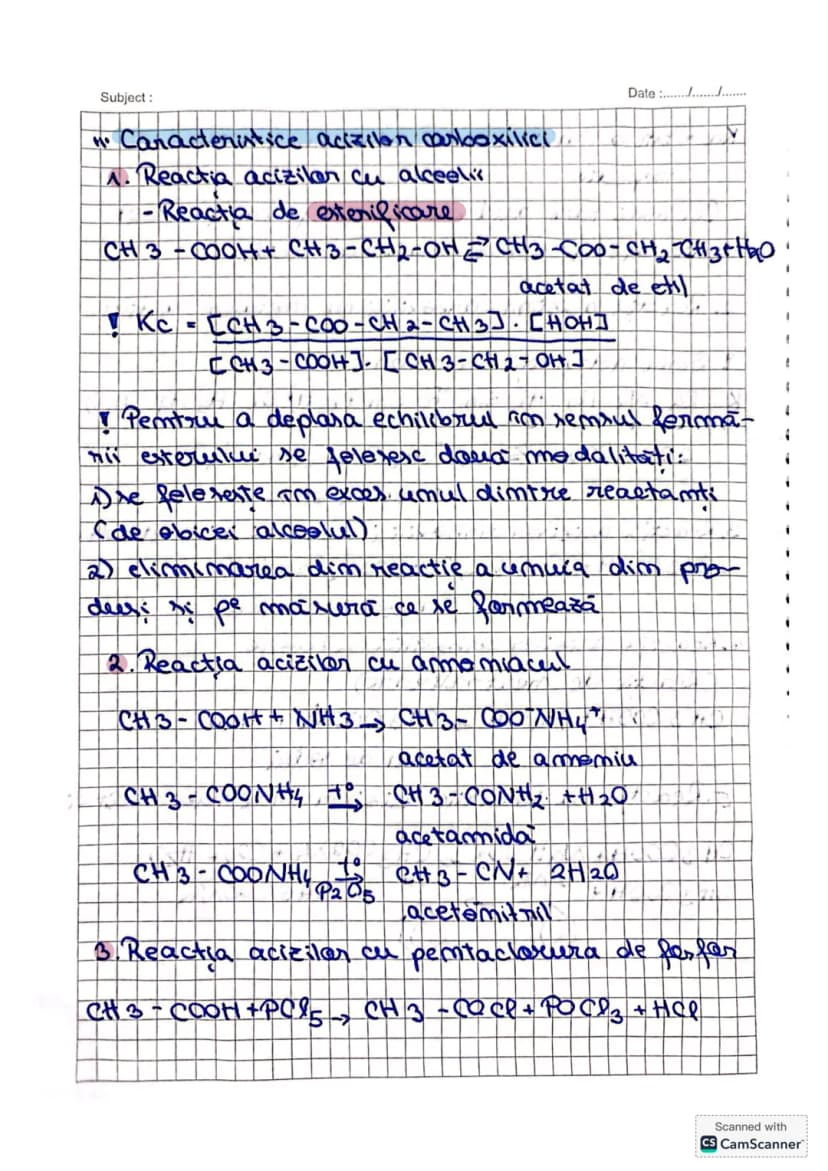 Subject :
Date :....../....../.......
"" Caracteristice acizilor carboxilici
1. Reactia acizilor cu alcoolii
- Reacția de esterificare
CH3-COOH + CH3-CH2-OH ⇌ CH3-COO-CH2-CH3 + H2O
acetat de etil
! Kc = [CH3-COO-CH2-CH3]·[HOH]
[CH3-COOH]·[CH3-CH2-OH]
! Pentru a deplasa echilibrul în sensul formă-
rii esterului se folosesc două modalități:
1) se folosește în exces unul dintre reactanți
(de obicei alcoolul)
2) eliminarea din reacție a unuia din pro-
duși și pe măsură ce se formează
2. Reacția acizilor cu amoniacul
CH3-COOH + NH3 → CH3-COO⁻NH4⁺
acetat de amoniu
CH3-COONH4 t°→ CH3-CONH2 + H2O
acetamidă
CH3-COONH4 t°→ P2O5 CH3-CN + 2H2O
acetonitril
3. Reacția acizilor cu pentaclorura de fosfor
CH3-COOH + PCl5 → CH3-COCl + POCl3 + HCl
Scanned with
CS CamScanner